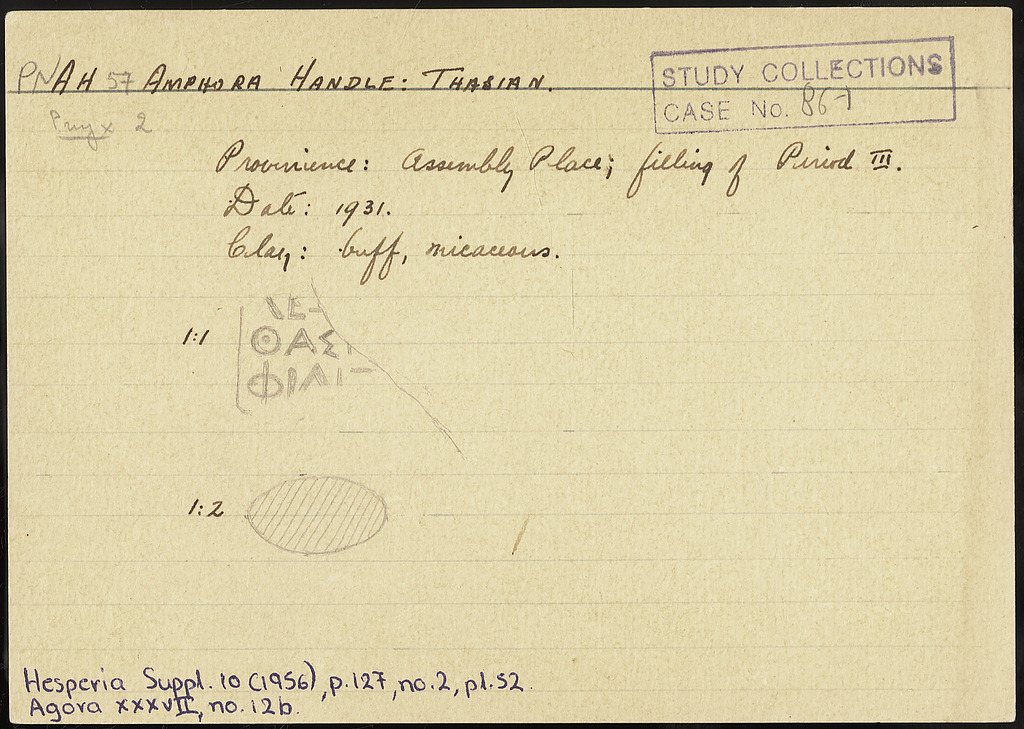 PNAH 57 AMPHORA HANDLE: THASIAN.
STUDY COLLECTIONS
CASE No. 86-1
Pnyx 2
Provinience: Assembly Place; filling of Period III.
Date: 1931.
Clay: buff, micaceous.
1:1
ΘΑΣ
ΦΙΛΙ
1:2
Hesperia Suppl. 10 (1956), p.127, no.2, pl.52.
Agora XXXVII, no.12b.